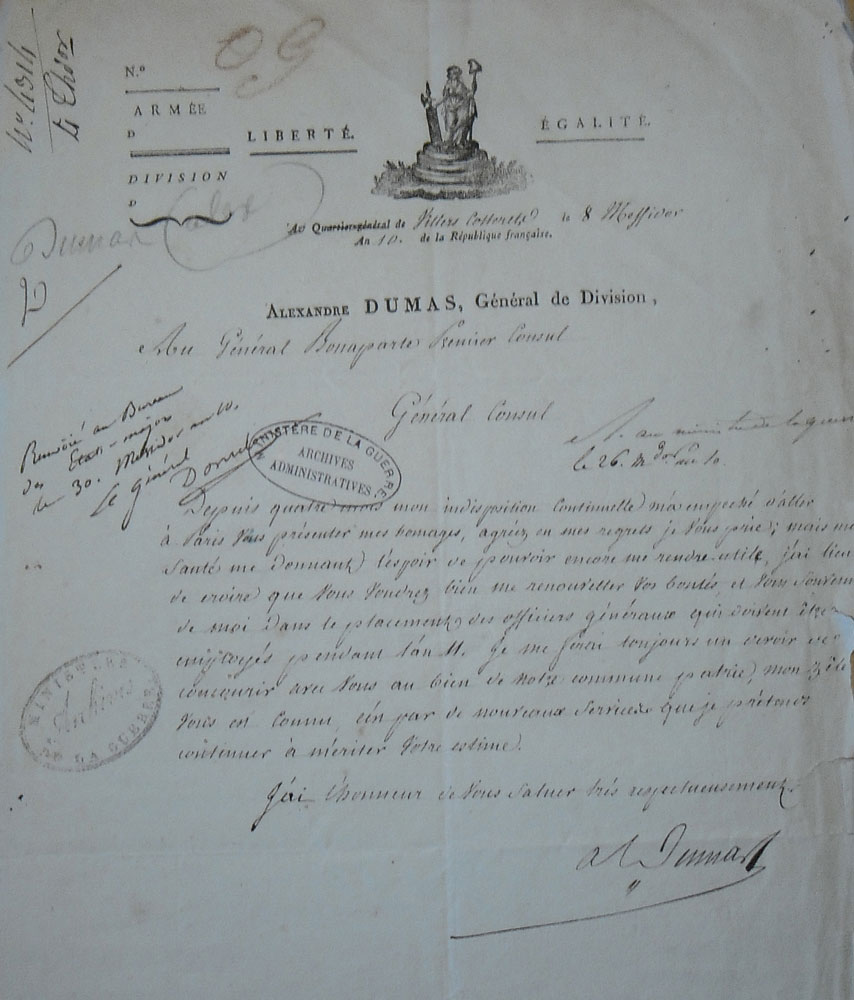 N.º 4314
N.º
ARMÉE
D
DIVISION
D
LIBERTÉ.
ÉGALITÉ.
Au Quartier-général de Villers Cotterets le 8 Messidor
An 10. de la République française.
Dumas (alex
ALEXANDRE DUMAS, Général de Division,
Au Général Bonaparte Premier Consul
Renvoié au Bureau
des Etats-major
le 30. Messidor an 10.
Le Général
Général Consul
R. au ministre de la guerre
le 26. mdor an 10.
MINISTÈRE DE LA GUERRE
ARCHIVES
ADMINISTRATIVES
Depuis quatre mois mon indisposition continuelle m'a empeché d'aller
à Paris Vous présenter mes homages, agréez en mes regrets je Vous prie; mais ma
santé me donnant l'espoir de pouvoir encore me rendre utile, j'ai lieu
de croire que Vous Voudrez bien me renouveller Vos bontés, et Vous souvenir
de moi dans le placement des officiers généraux qui doivent être
employés pendant l'an 11. Je me ferai toujours un devoir de
concourir avec Vous au bien de notre commune patrie, mon zèle
Vous est connu, c'est par de nouveaux services que je prétends
continuer à mériter Votre estime.
J'ai l'honneur de Vous saluer très respectueusement.
MINISTERE
Archives
DE LA GUERRE
al Dumas